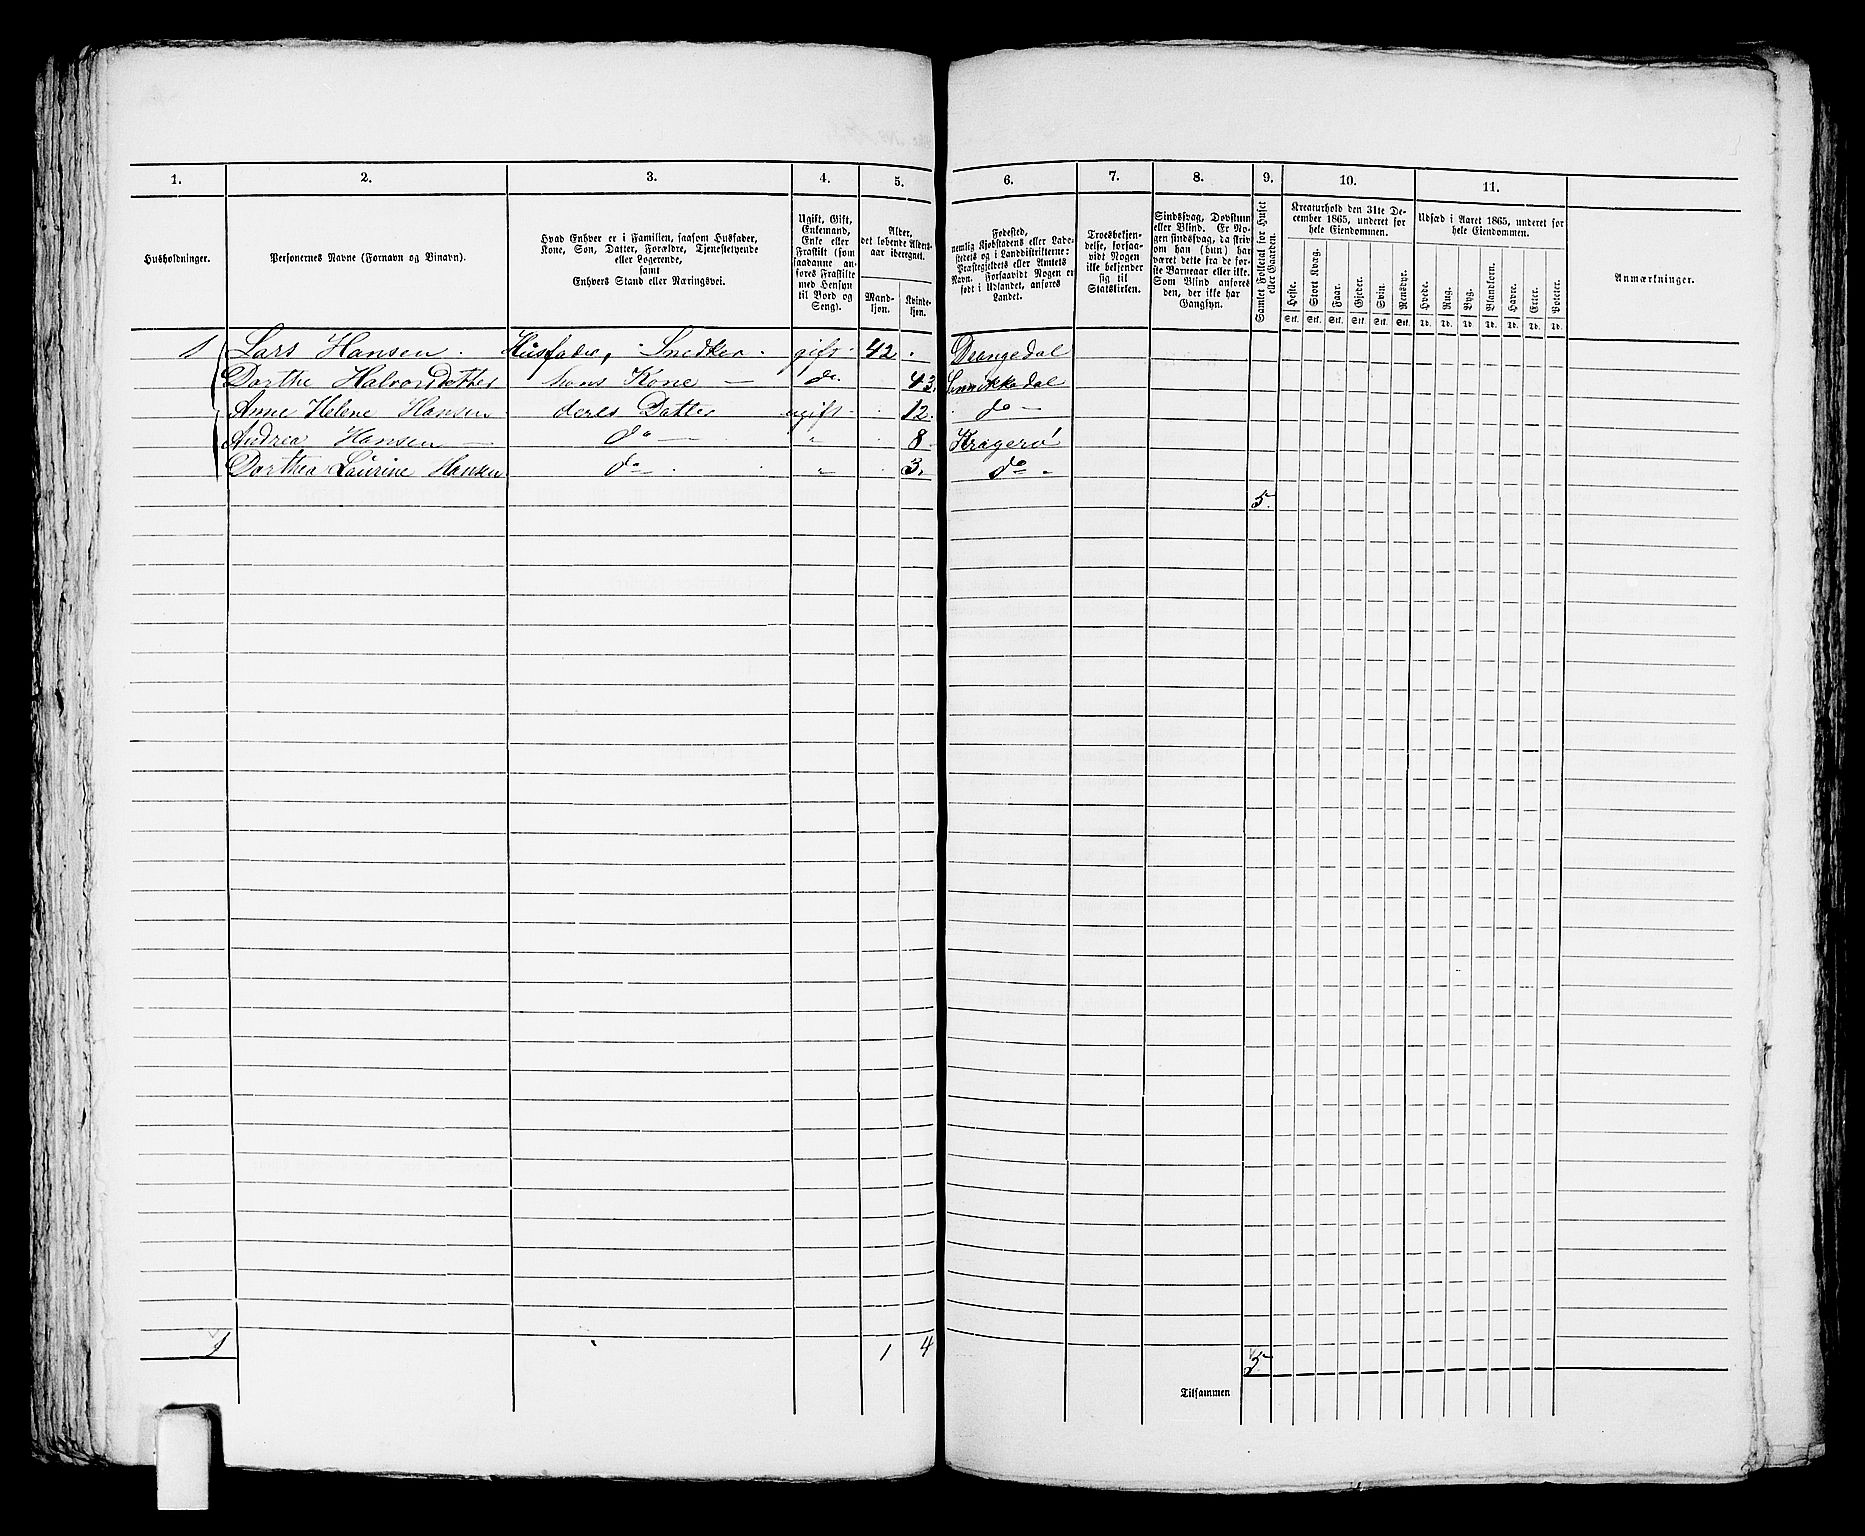 1. 2. 3. 4. 5. 6. 7. 8. 9. 10. 11.
Husholdninger.
Personernes Navne (Fornavn og Binavn).
Hvad Enhver er i Familien, saasom Husfader,
Kone, Søn, Datter, Forældre, Tjenestetyende
eller Logerende,
samt
Enhvers Stand eller Næringsvei.
Ugift, Gift,
Enkemand,
Enke eller
Fraskilt (som
saadanne an-
føres Fraskilte
med Hensyn
til Bord og
Seng).
Alder,
det løbende Alders-
aar iberegnet.
Mand-
kjøn.
Kvinde-
kjøn.
Fødested,
nemlig Kjøbstadens eller Lade-
stedets og i Landdistrikterne:
Præstegjeldets eller Amtets
Navn. Forsaavidt Nogen er
født i Udlandet, anføres
Landet.
Troesbekjen-
delse, forsaa-
vidt Nogen
ikke bekjender
sig til
Statskirken.
Sindssvag, Døvstum
eller Blind. Er No-
gen sindssvag, da skriv
om han (hun) har
været dette fra de før-
ste Barneaar eller ikke.
Som Blind anføres
den, der ikke har
Gangsyn.
Samlet Folketal for Huset
eller Gaarden.
Kreaturhold den 31te De-
cember 1865, underet for
hele Eiendommen.
Heste. Stort Kvæg. Faar. Gjeder. Svin. Rensdyr.
Stk. Stk. Stk. Stk. Stk. Stk.
Udsæd i Aaret 1865, underet for
hele Eiendommen.
Hvede. Rug. Byg. Blandkorn. Havre. Erter. Poteter.
Td. Td. Td. Td. Td. Td. Td.
Anmærkninger.
1 Lars Hansen. Husfader, Snedker. gift 42 Drangedal
Dorthe Halvorsdatter hans Kone — do. 43. Sannikedal
Anne Helene Hansen deres Datter ugift 12. do —
Andrea Hansen — do — " 8 Kragerø
Dorthea Laurine Hansen do — " 3. do —
5.
1 1 4 5
Tilsammen